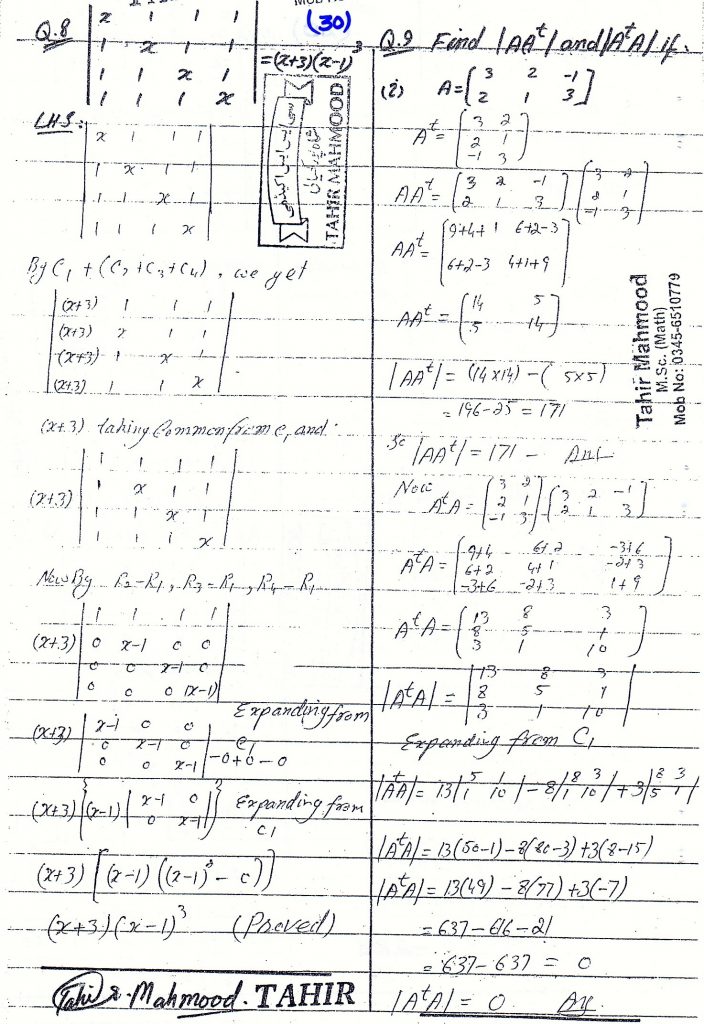 (30)
Q.8
x 1 1 1
1 x 1 1
1 1 x 1
1 1 1 x
=(x+3)(x-1)³
LHS:
x 1 1 1
1 x 1 1
1 1 x 1
1 1 1 x
TAHIR MAHMOOD
By C₁ + (C₂ + C₃ + C₄), we get
(x+3) 1 1 1
(x+3) x 1 1
(x+3) 1 x 1
(x+3) 1 1 x
(x+3) taking Common from C, and
1 1 1 1
(x+3) 1 x 1 1
1 1 x 1
1 1 1 x
Now By R₂-R₁, R₃-R₁, R₄-R₁
1 1 1 1
(x+3) 0 x-1 0 0
0 0 x-1 0
0 0 0 (x-1)
Expanding from
(x+3) | x-1 0 0
0 x-1 0 | C₁
0 0 x-1 | -0+0-0
(x+3){(x-1)| x-1 0
0 x-1 |} Expanding from
C₁
(x+3)[(x-1)((x-1)²-0)]
(x+3)(x-1)³ (Proved)
Mahmood. TAHIR
Q.9 Find |AAᵗ| and |AᵗA| if.
(i) A=[3 2 -1
2 1 3]
Aᵗ=[3 2
2 1
-1 3]
AAᵗ=[3 2 -1
2 1 3][3 2
2 1
-1 3]
AAᵗ=[9+4+1 6+2-3
6+2-3 4+1+9]
AAᵗ=[14 5
5 14]
|AAᵗ|=(14x14)-(5x5)
=196-25=171
So |AAᵗ|=171 - Ans
Now
AᵗA=[3 2
2 1
-1 3][3 2 -1
2 1 3]
AᵗA=[9+4 6+2 -3+6
6+2 4+1 -2+3
-3+6 -2+3 1+9]
AᵗA=[13 8 3
8 5 1
3 1 10]
|AᵗA|=|13 8 3
8 5 1
3 1 10|
Expanding from C₁
|AᵗA|=13|5 1
1 10|-8|8 3
1 10|+3|8 3
5 1|
|AᵗA|=13(50-1)-8(80-3)+3(8-15)
|AᵗA|=13(49)-8(77)+3(-7)
=637-616-21
=637-637=0
|AᵗA|=0 Ans
Tahir Mahmood
M.Sc. (Math)
Mob No: 0345-6510779